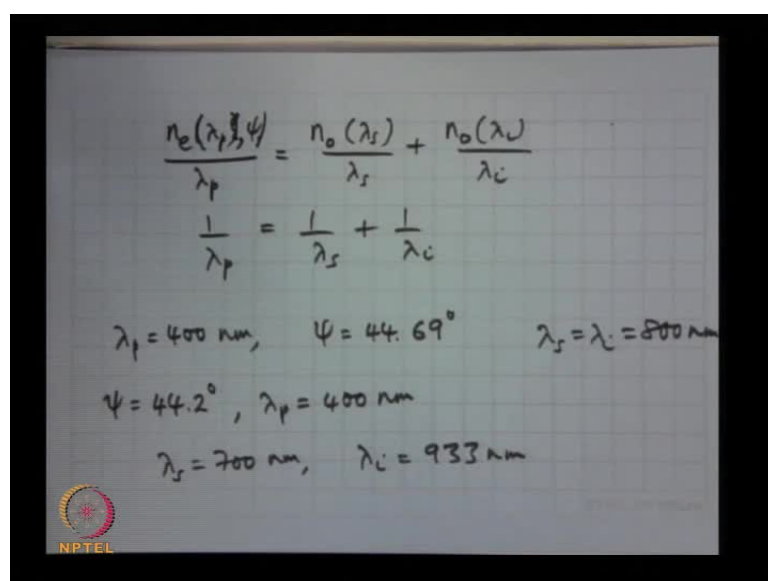 nₑ(λₚ, ψ) / λₚ = nₒ(λₛ) / λₛ + nₒ(λᵢ) / λᵢ
1 / λₚ = 1 / λₛ + 1 / λᵢ
λₚ = 400 nm, ψ = 44.69° λₛ = λᵢ = 800 nm
ψ = 44.2°, λₚ = 400 nm
λₛ = 700 nm, λᵢ = 933 nm
NPTEL